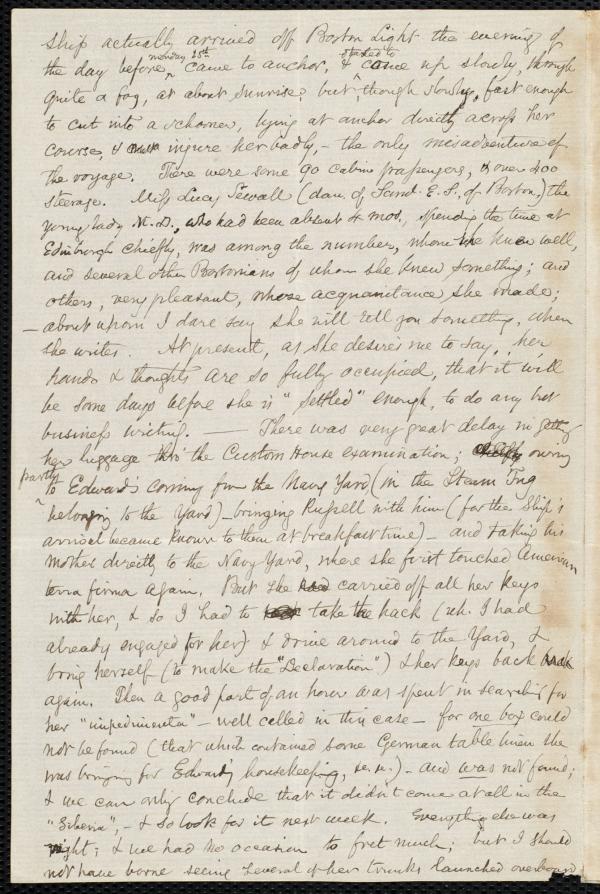 ship actually arrived off Boston Light the evening of
the day before, monday 25th came to anchor, & started to come up slowly, through
quite a fog, at about sunrise; but, though slowly, fast enough
to cut into a schooner, lying at anchor directly across her
course, & injure her badly, - the only misadventure of
the voyage. There were some 90 cabin passengers, & over 400
steerage. Miss Lucy Sewall (dau. of Saml. E. S., of Boston,) the
young lady M. D., who had been absent mos., spending the time at
Edinburgh chiefly, was among the number, whom she knew well,
and several other Bostonians of whom she knew something; and
others, very pleasant, whose acquaintance she made;
- about whom I dare say she will tell you something, when
she writes. At present, as she desires me to say, her
hands & thoughts are so fully occupied, that it will
be some days before she is "settled" enough, to do any but
business writing. — There was very great delay in getting
her luggage thro' the Custom House examination; chiefly owing
partly to Edward's coming from the Navy Yard (in the Steam Tug
belonging to the Yard) - bringing Russell with him (for the Ship's
arrival became known to them at breakfast time) - and taking his
mother directly to the Navy Yard, where she first touched American
terra firma again. But she had carried off all her keys
with her, & so I had to take the hack (wh. I had
already engaged for her) & drive around to the Yard, &
bring herself (to make the "Declaration") & her keys back
again. Then a good part of an hour was spent in searching for
her "impedimenta" - well called in this case - for one box could
not be found (that which contained some German table linen she
was bringing for Edward's housekeeping, &c. &c.) - and was not found;
& we can only conclude that it didn't come at all in the
"Siberia", - & so look for it next week. Everything else was
right; & we had no occasion to fret much; but I should
not have borne seeing several of her trunks launched overboard